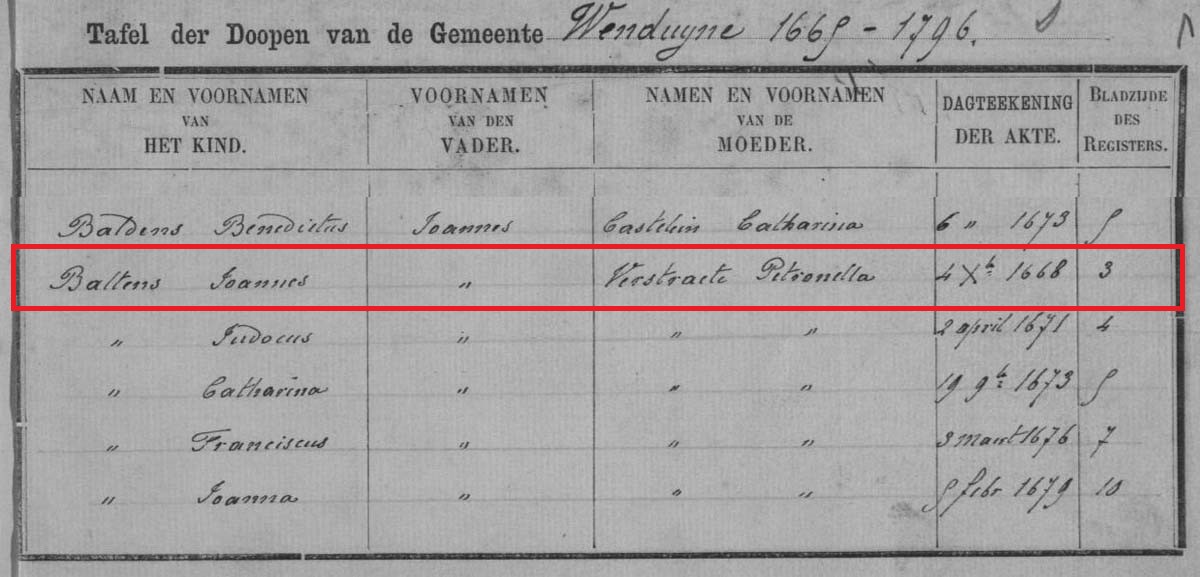 Tafel der Doopen van de Gemeente Wenduyne 1665 - 1796.
NAAM EN VOORNAMEN VAN HET KIND. VOORNAMEN VAN DEN VADER. NAMEN EN VOORNAMEN VAN DE MOEDER. DAGTEEKENING DER AKTE. BLADZIJDE DES REGISTERS.
Baldens Benedictus Joannes Castelein Catharina 6 „ 1673 5
Baltens Joannes „ Verstraete Petronella 4 Xb 1668 3
„ Judocus „ „ „ 2 april 1671 4
„ Catharina „ „ „ 19 9b 1673 5
„ Franciscus „ „ „ 3 maart 1676 7
„ Joanna „ „ „ 5 febr 1679 10